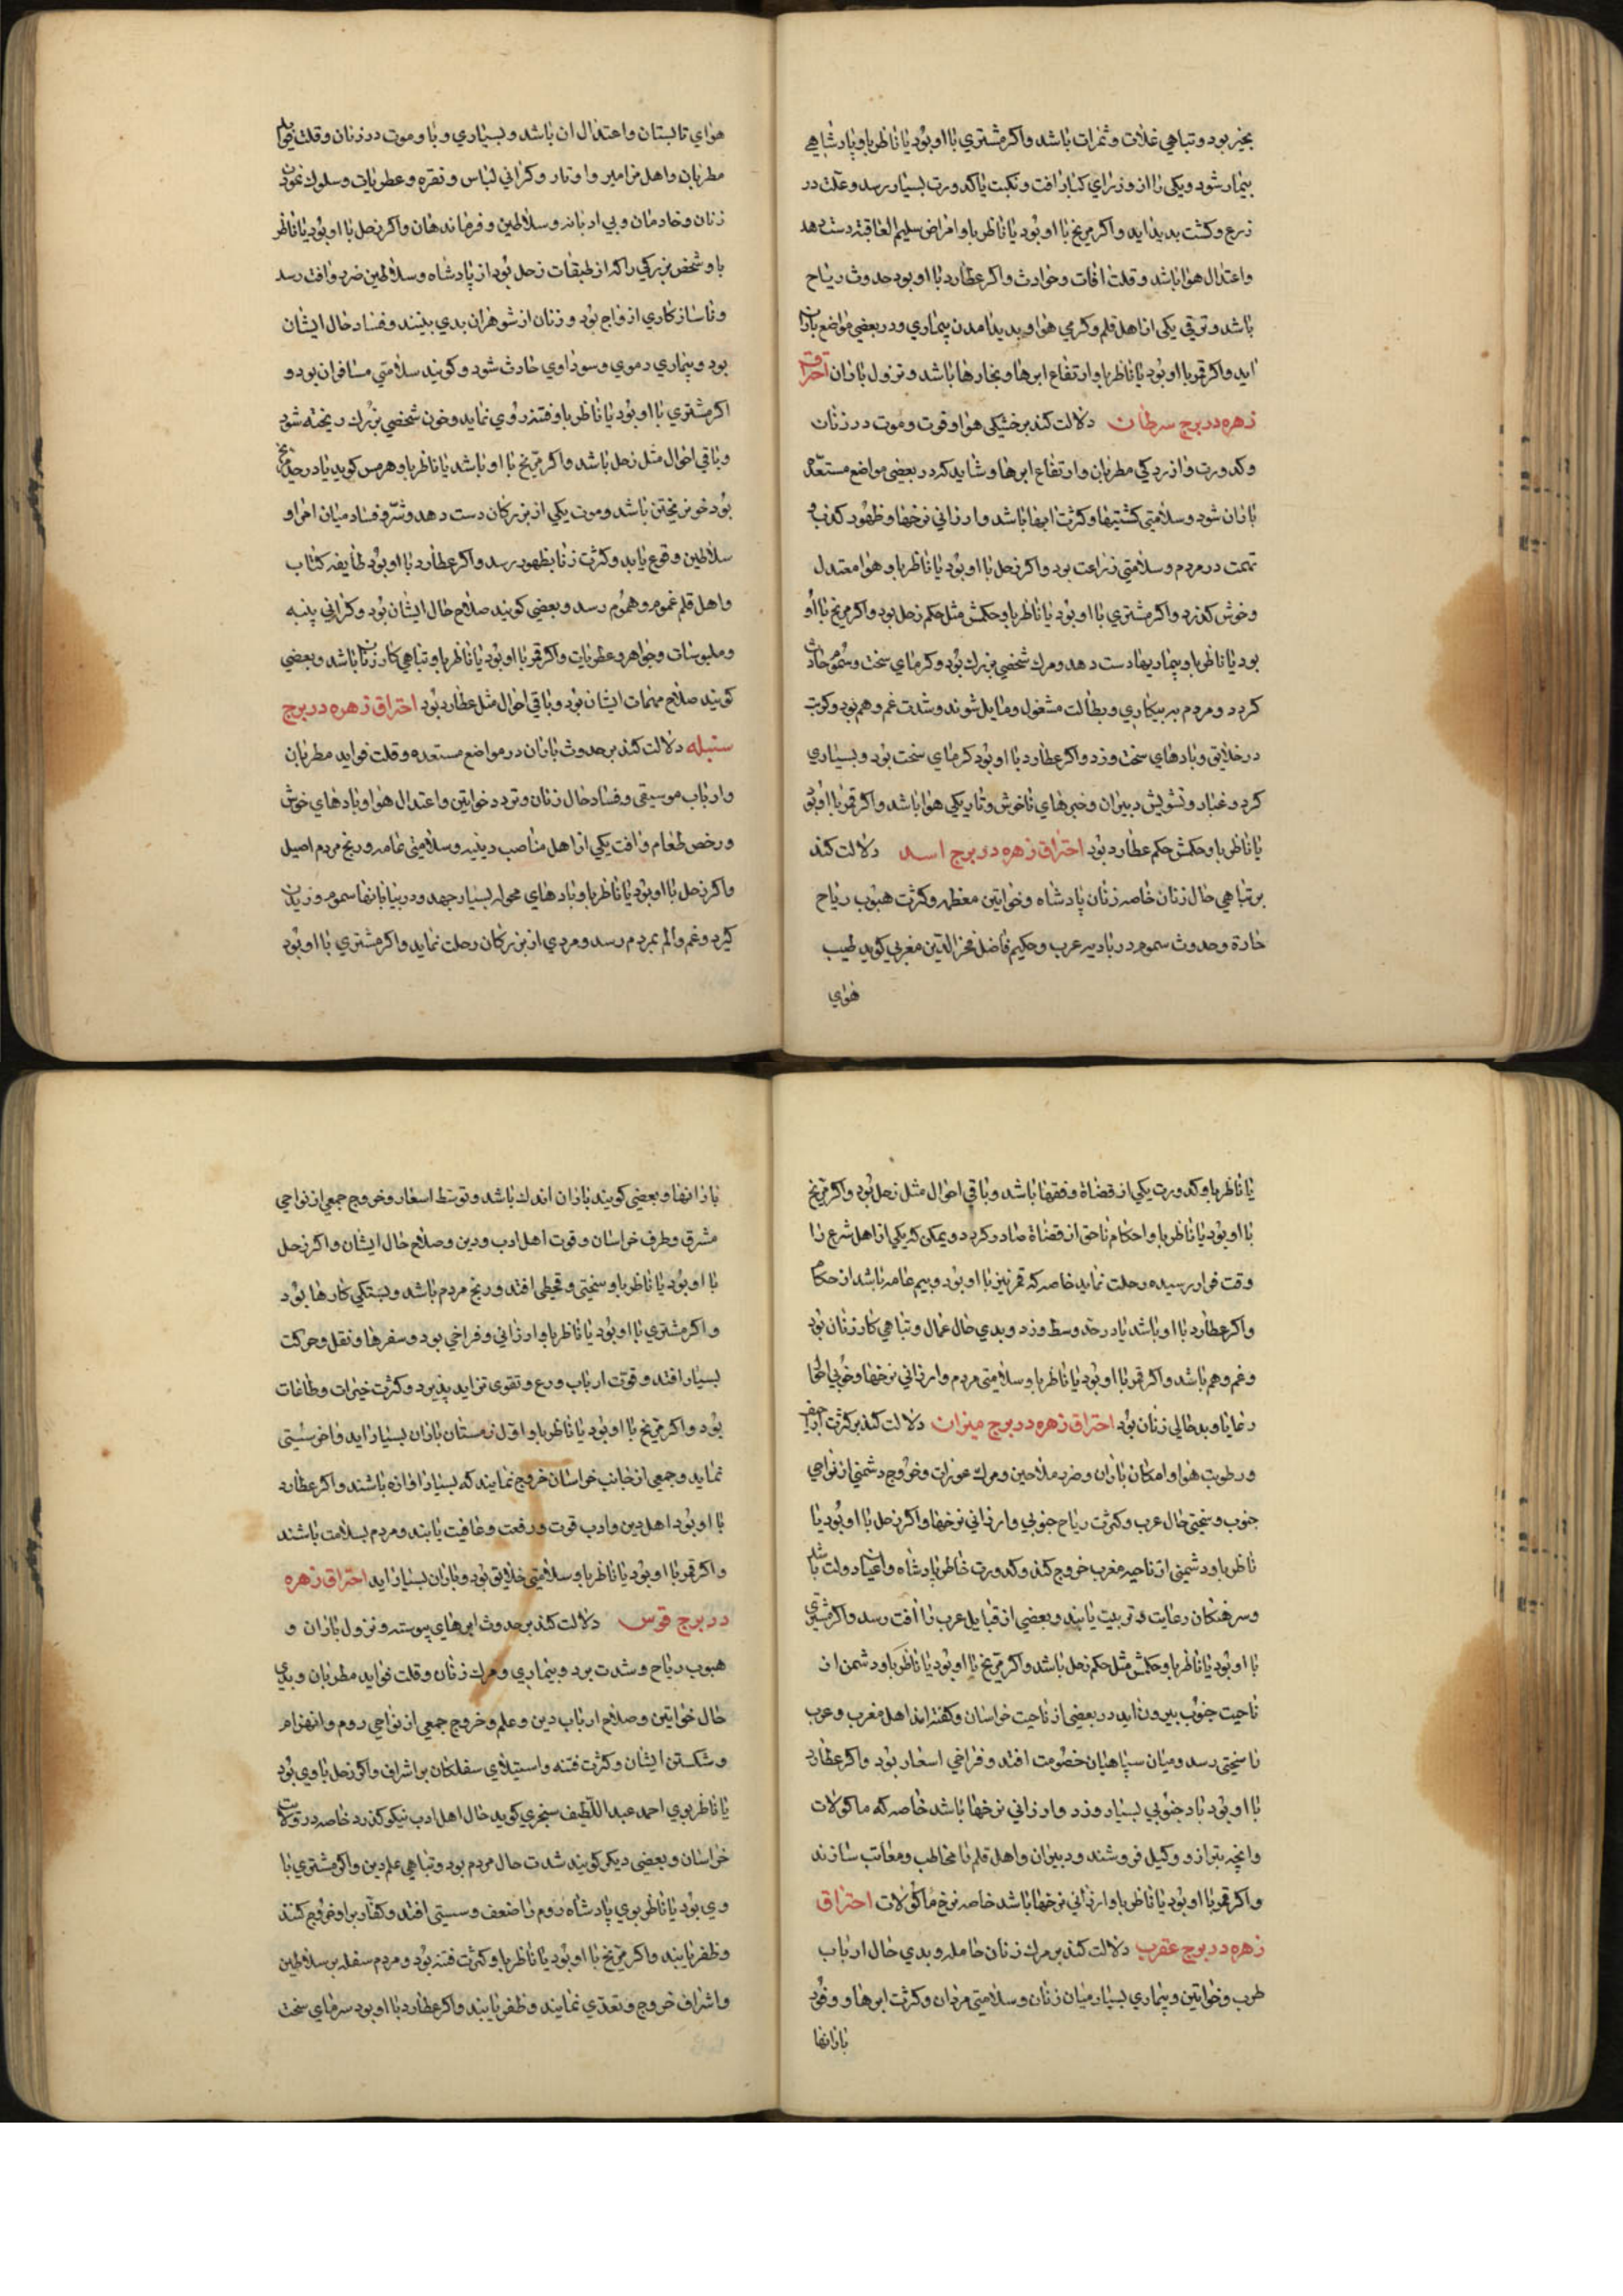 بخیر بود و تباهی غلات و ثمرات باشد و اکر مشتری با او بود یا ناظر باو پادشاهی
بیمار شود و یکی را از وزرای کبار افت و نکبت یا کدورت بسیار رسد و علت در
زرع و کشت بدید اید و اکر مریخ با او بود یا ناظر باو امراض سلیم العاقبة دست دهد
و اعتدال هوا باشد و قلت افات و حوادث و اکر عطارد با او بود حدوث ریاح
باشد و ترقی یکی از اهل قلم و کرمی هوا و بدید امدن بیماری و در بعضی مواضع باران
اید و اکر قمر با او بود یا ناظر باو ارتفاع ابرها و بخارها باشد و نزول باران احتراق
زهره در برج سرطان دلالت کند بر خشکی هوا و قوت و موت در زنان
و کدورت و ازردکی مطربان و ارتفاع ابرها و شاید کر در بعضی مواضع مستعده
باران شود و سلامتی کشتیها و کثرت ابها باشد و ارزانی نرخها و ظهور کذب و
تهمت در مردم و سلامتی زراعت بود و اکر زحل با او بود یا ناظر باو هوا معتدل
و خوش کذرد و اکر مشتری با او بود یا ناظر باو حکمش مثل حکم زحل بود و اکر مریخ با او
بود یا ناظر باو بیماریها دست دهد و مرک شخصی بزرك بود و کرمای سخت و سموم حادث
کردد و مردم به بیکاری و بطالت مشغول و مایل شوند و شدت غم و هم بود و کربت
در خلایق و بادهای سخت وزد و اکر عطارد با او بود کرمای سخت بود و بسیاری
کرد و غبار و تشویش دبیران و خبرهای ناخوش و تاریکی هوا باشد و اکر قمر با او بود
یا ناظر باو حکمش حکم عطارد بود احتراق زهره در برج اسد دلالت کند
بر تباهی حال زنان خاصه زنان پادشاه و خواتین معظمه و کثرت هبوب ریاح
حارة و حدوث سموم در بادیه عرب و حکیم فاضل فخر الدین مغربی کوید طیب
هوای
هوای تابستان و اعتدال ان باشد و بسیاری وبا و موت در زنان و قلت فواید
مطربان و اهل مزامیر و اوتار و کرانی لباس و نقره و عطریات و سلوك نمودن
زنان و خادمان و بی ادبانه و سلاطین و فرماندهان و اکر زحل با او بود یا ناظر
باو شخص بزرکی را که از طبقات زحل بود از پادشاه و سلاطین ضرر و افت رسد
و ناسازکاری ازواج بود و زنان از شوهران بدی بینند و فساد حال ایشان
بود و بیماری دموی و سوداوی حادث شود و کویند سلامتی مسافران بود و
اکر مشتری با او بود یا ناظر باو فتنه روی نماید و خون شخصی بزرك ریخته شود
و باقی احوال مثل زحل باشد و اکر مریخ با او باشد یا ناظر باو هرمس کوید یا در حد مریخ
بود خونریختن باشد و موت یکی از بزرکان دست دهد و شر و فساد میان امرا و
سلاطین وقوع یابد و کثرت زنا بظهور رسد و اکر عطارد با او بود طایفه کتاب
و اهل قلم غموم و هموم رسد و بعضی کویند صلاح حال ایشان بود و کرانی پنبه
و ملبوسات و جواهر و عطریات و اکر قمر با او بود یا ناظر باو تباهی کار زنان باشد و بعضی
کویند صلاح مهمات ایشان بود و باقی احوال مثل عطارد بود احتراق زهره در برج
سنبله دلالت کند بر حدوث باران در مواضع مستعده و قلت فواید مطربان
و ارباب موسیقی و فساد حال زنان و تردد خواتین و اعتدال هوا و بادهای خوش
و رخص طعام و افت یکی از اهل مناصب دینیه و سلامتی عامه و رنج مردم اصیل
و اکر زحل با او بود یا ناظر باو بادهای محوله بسیار جهد و در بیابانها سموم وزیدن
کیرد و غم و الم بمردم رسد و مردی از بزرکان رحلت نماید و اکر مشتری با او بود
یا ناظر باو کدورت یکی از قضاة و فقها باشد و باقی احوال مثل زحل بود و اکر مریخ
با او بود یا ناظر باو احکام ناحق از قضاة صادر کردد و یمکن که یکی از اهل شرع را
وقت فرا رسیده رحلت نماید خاصه که قمر نیز با او بود و بیم عامه باشد از حکام
و اکر عطارد با او باشد یا در حد وسط وزد و بدی حال عمال و تباهی کار زنان بود
و غم و هم باشد و اکر قمر با او بود یا ناظر باو سلامتی مردم و ارزانی نرخها و خوبی
رعایا و بد حالی زنان بود احتراق زهره در برج میزان دلالت کند بر کثرت
و رطوبت هوا و امکان باران و ضرر ملاحین و مرك عورات و خروج دشمنی از نواحی
جنوب و سختی حال عرب و کثرت ریاح جنوبی و ارزانی نرخها و اکر زحل با او بود یا
ناظر باو دشمنی از ناحیه مغرب خروج کند و کدورت خاطر پادشاه و اعیان دولت باشد
و سرهنکان رعایت و تربیت یابند و بعضی از قبایل عرب را افت رسد و اکر مشتری
با او بود یا ناظر باو حکمش مثل حکم زحل باشد و اکر مریخ با او بود یا ناظر باو دشمن از
ناحیت جنوب بیرون اید در بعضی از ناحیت خراسان و کفته اند اهل مغرب و عرب
را سختی رسد و میان سپاهیان خصومت افتد و فراخی اسعار بود و اکر عطارد
با او بود باد جنوبی بسیار وزد و ارزانی نرخها باشد خاصه که ماکولات
و انچه بترازو و وکیل فروشند و دبیران و اهل قلم را مخاطب و معاتب سازند
و اکر قمر با او بود یا ناظر باو ارزانی نرخها باشد خاصه نرخ ماکولات احتراق
زهره در برج عقرب دلالت کند بر مرك زنان حامله و بدی حال ارباب
طرب و خواتین و بیماری بسیار میان زنان و سلامتی مردان و کثرت ابرها و وفور
بارانها
بارانها و بعضی کویند باران اندك باشد و توسط اسعار و خروج جمعی از نواحی
مشرق و طرف خراسان و قوت اهل ادب و دین و صلاح حال ایشان و اکر زحل
با او بود یا ناظر باو سختی و قحطی افتد و رنج مردم باشد و بستکی کارها بود
و اکر مشتری با او بود یا ناظر باو ارزانی و فراخی بود و سفرها و نقل و حرکت
بسیار افتد و قوت ارباب ورع و تقوی تزاید پذیرد و کثرت خیرات و طاعات
بود و اکر مریخ با او بود یا ناظر باو اول زمستان باران بسیار اید و اخر سستی
نماید و جمعی از جانب خراسان خروج نمایند که بسیار اوازه باشند و اکر عطارد
با او بود اهل دین و ادب قوت و رفعت و عافیت یابند و مردم بسلامت باشند
و اکر قمر با او بود یا ناظر باو سلامتی خلایق بود و باران بسیار اید احتراق زهره
در برج قوس دلالت کند بر حدوث ابرهای پیوسته و نزول باران و
هبوب ریاح و شدت برد و بیماری و مرك زنان و قلت فواید مطربان و بدی
حال خواتین و صلاح ارباب دین و علم و خروج جمعی از نواحی روم و انهزام
و شکستن ایشان و کثرت فتنه و استیلای سفلکان بر اشراف و اکر زحل با وی بود
یا ناظر بوی احمد عبد اللطیف سنجری کوید حال اهل ادب نیکو کذرد خاصه در ولایت
خراسان و بعضی دیکر کویند شدت حال مردم بود و تباهی علم دین و اکر مشتری با
وی بود یا ناظر بوی پادشاه روم را ضعف و سستی افتد و کفار بر او خروج کنند
و ظفر یابند و اکر مریخ با او بود یا ناظر باو کثرت فتنه بود و مردم سفله بر سلاطین
و اشراف خروج و تعدی نمایند و ظفر یابند و اکر عطارد با او بود سرمای سخت